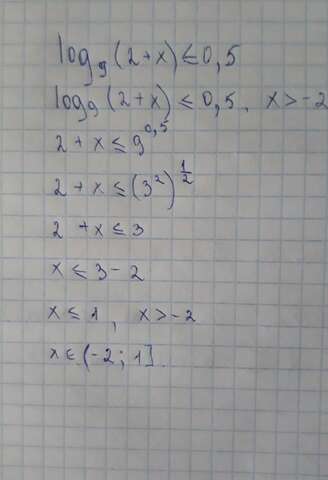 log₉(2+x) ≤ 0,5
log₉(2+x) ≤ 0,5, x > -2
2 + x ≤ 9^0,5
2 + x ≤ (3²)^½
2 + x ≤ 3
x ≤ 3 - 2
x ≤ 1, x > -2
x ∈ (-2; 1].